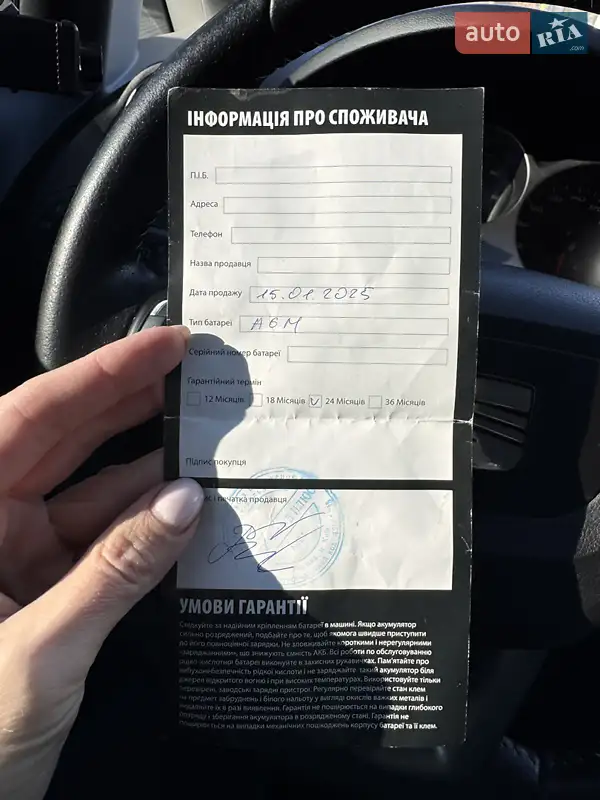 auto RIA .com
ІНФОРМАЦІЯ ПРО СПОЖИВАЧА
П.І.Б.
Адреса
Телефон
Назва продавця
Дата продажу 15.01.2025
Тип батареї AGM
Серійний номер батареї
Гарантійний термін
12 Місяців 18 Місяців 24 Місяців 36 Місяців
Підпис покупця
і печатка продавця
УМОВИ ГАРАНТІЇ
Слідкуйте за надійним кріпленням батареї в машині. Якщо акумулятор
сильно розряджений, подбайте про те, щоб якомога швидше приступити
до його повноцінної зарядки. Не зловживайте короткими і нерегулярними
«зарядками», що знижують ємність АКБ. Всі роботи по обслуговуванню
рідко-кислотної батареї виконуйте в захисних рукавичках. Пам'ятайте про
вибухонебезпечність рідкої кислоти і не заряджайте такий акумулятор біля
джерел відкритого вогню і при високих температурах. Використовуйте тільки
перевірені, заводські зарядні пристрої. Регулярно перевіряйте стан клем
на предмет забруднень і білого нальоту у вигляді окислів важких металів і
видаляйте їх в разі виявлення. Гарантія не поширюється на випадки глибокого
розряду і зберігання акумулятора в розрядженому стані. Гарантія не
поширюється на випадки механічних пошкоджень корпусу батареї та її клем.